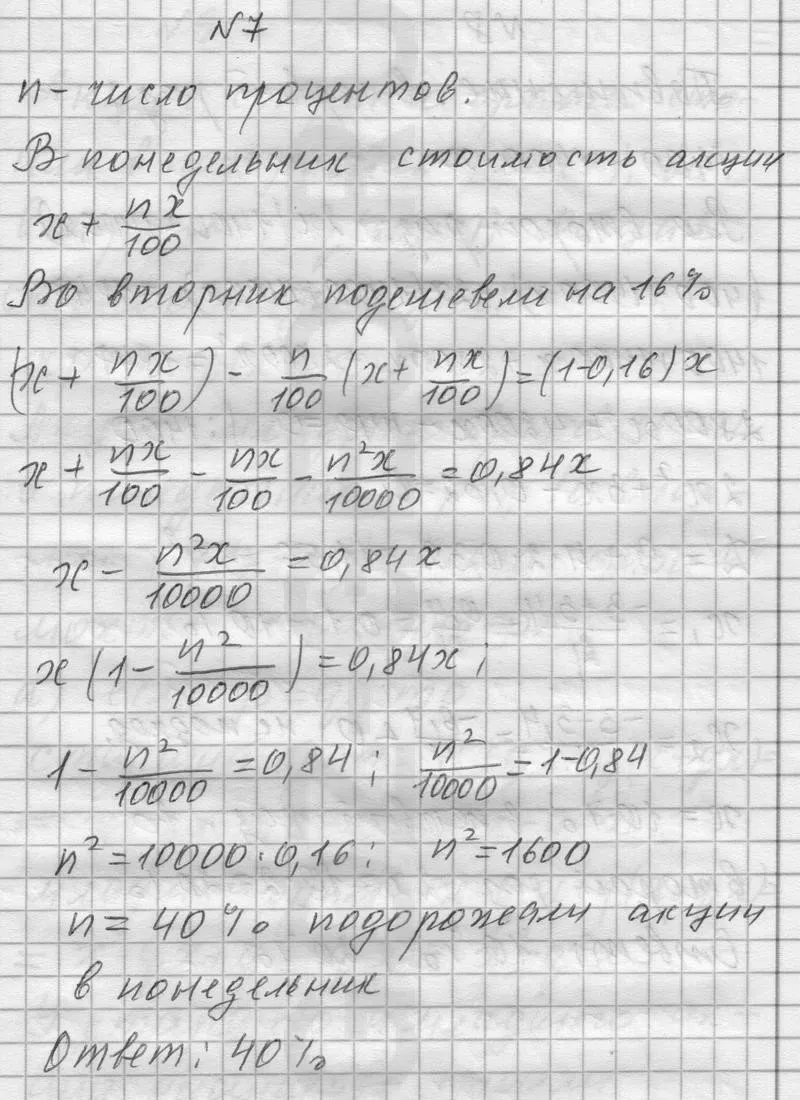 N7
n - число процентов.
В понедельник стоимость акции
x + nx/100
Во вторник подешевели на 16%
(x + nx/100) - n/100 (x + nx/100) = (1-0,16)x
x + nx/100 - nx/100 - n²x/10000 = 0,84x
x - n²x/10000 = 0,84x
x (1 - n²/10000) = 0,84x;
1 - n²/10000 = 0,84; n²/10000 = 1-0,84
n² = 10000 · 0,16; n² = 1600
n = 40% подорожали акции
в понедельник
Ответ: 40%